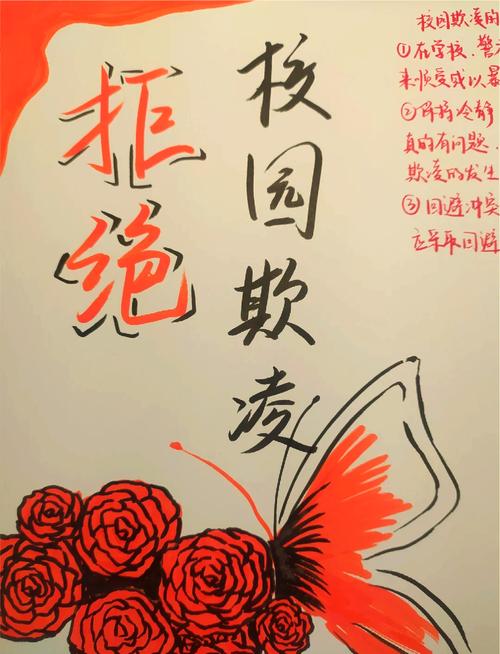 拒绝
校园欺凌
校园欺凌的
①在学校、警
来顺受或以暴
②保持冷静
真的有问题、
欺凌的发生
③回避冲突
应采取回避